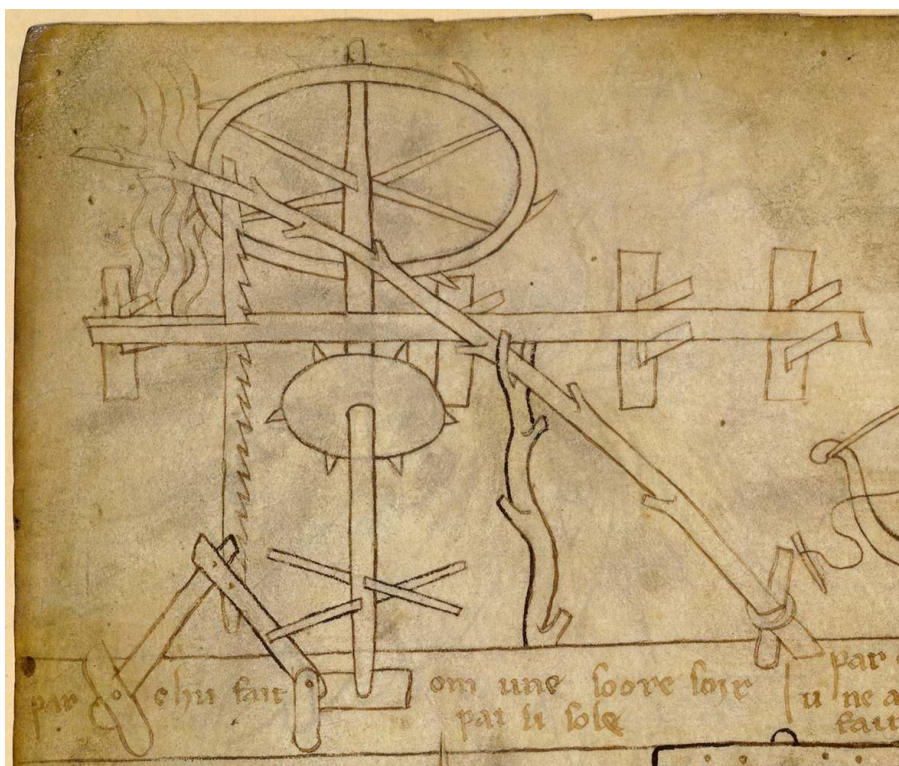 par chu fait om une soore soir
par li sole
par